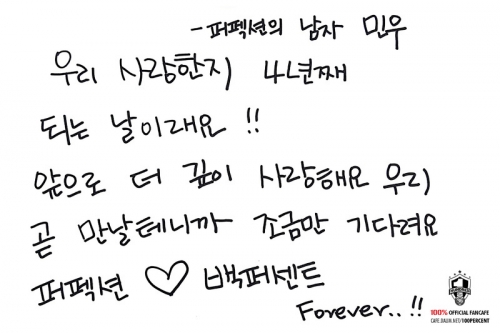 -퍼펙션의 남자 민우
우리 사랑한지 4년째
되는 날이래요 !!
앞으로 더 깊이 사랑해요 우리
곧 만날테니까 조금만 기다려요
퍼펙션 ♡ 백퍼센트
Forever..!!
100% OFFICIAL FANCAFE
CAFE.DAUM.NET/100PERCENT